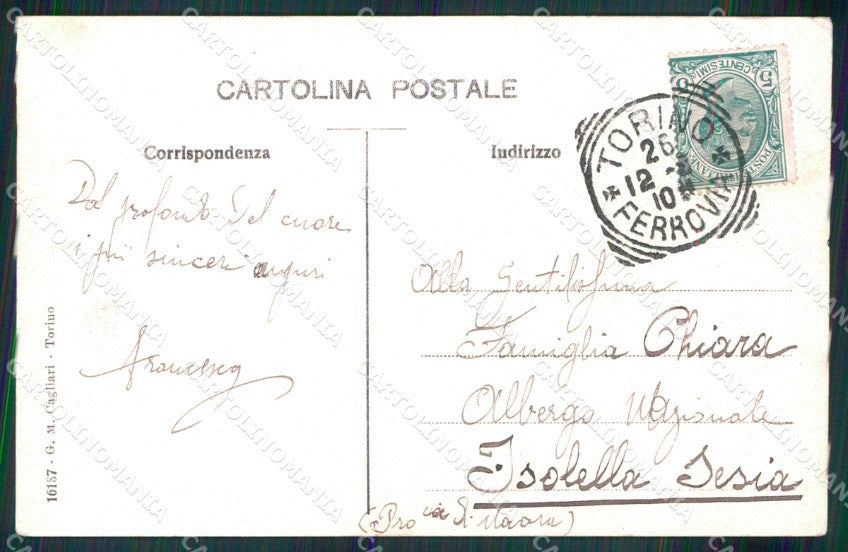 CARTOLINA POSTALE
Corrispondenza
Dal profondo del cuore
i più sinceri auguri
Francesca
16187 - G. M. Cagliari - Torino
Indirizzo
CENTESIMI
5
POSTE ITALIANE
TORINO
26
12
10
FERROVIA
Alla Gentilissima
Famiglia Chiara
Albergo Nazionale
Isolella Sesia
(Pro cia di Novara)
CARTOLINOMANIA